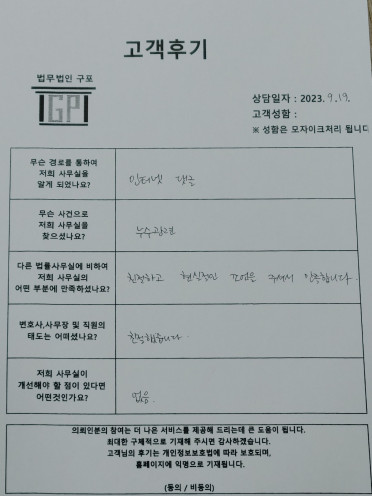 고객후기
법무법인 구포
IGPI
상담일자 : 2023. 9.19.
고객성함 :
※ 성함은 모자이크처리 됩니다
무슨 경로를 통하여
저희 사무실을
알게 되었나요?
인터넷 댓글
무슨 사건으로
저희 사무실을
찾으셨나요?
누수관련
다른 법률사무실에 비하여
저희 사무실의
어떤 부분에 만족하셨나요?
친절하고 현실적인 조언을 주셔서 만족합니다.
변호사,사무장 및 직원의
태도는 어떠셨나요?
친절했습니다.
저희 사무실이
개선해야 할 점이 있다면
어떤것인가요?
없음.
의뢰인분의 참여는 더 나은 서비스를 제공해 드리는데 큰 도움이 됩니다.
최대한 구체적으로 기재해 주시면 감사하겠습니다.
고객님의 후기는 개인정보보호법에 따라 보호되며,
홈페이지에 익명으로 기재됩니다.
(동의 / 비동의)